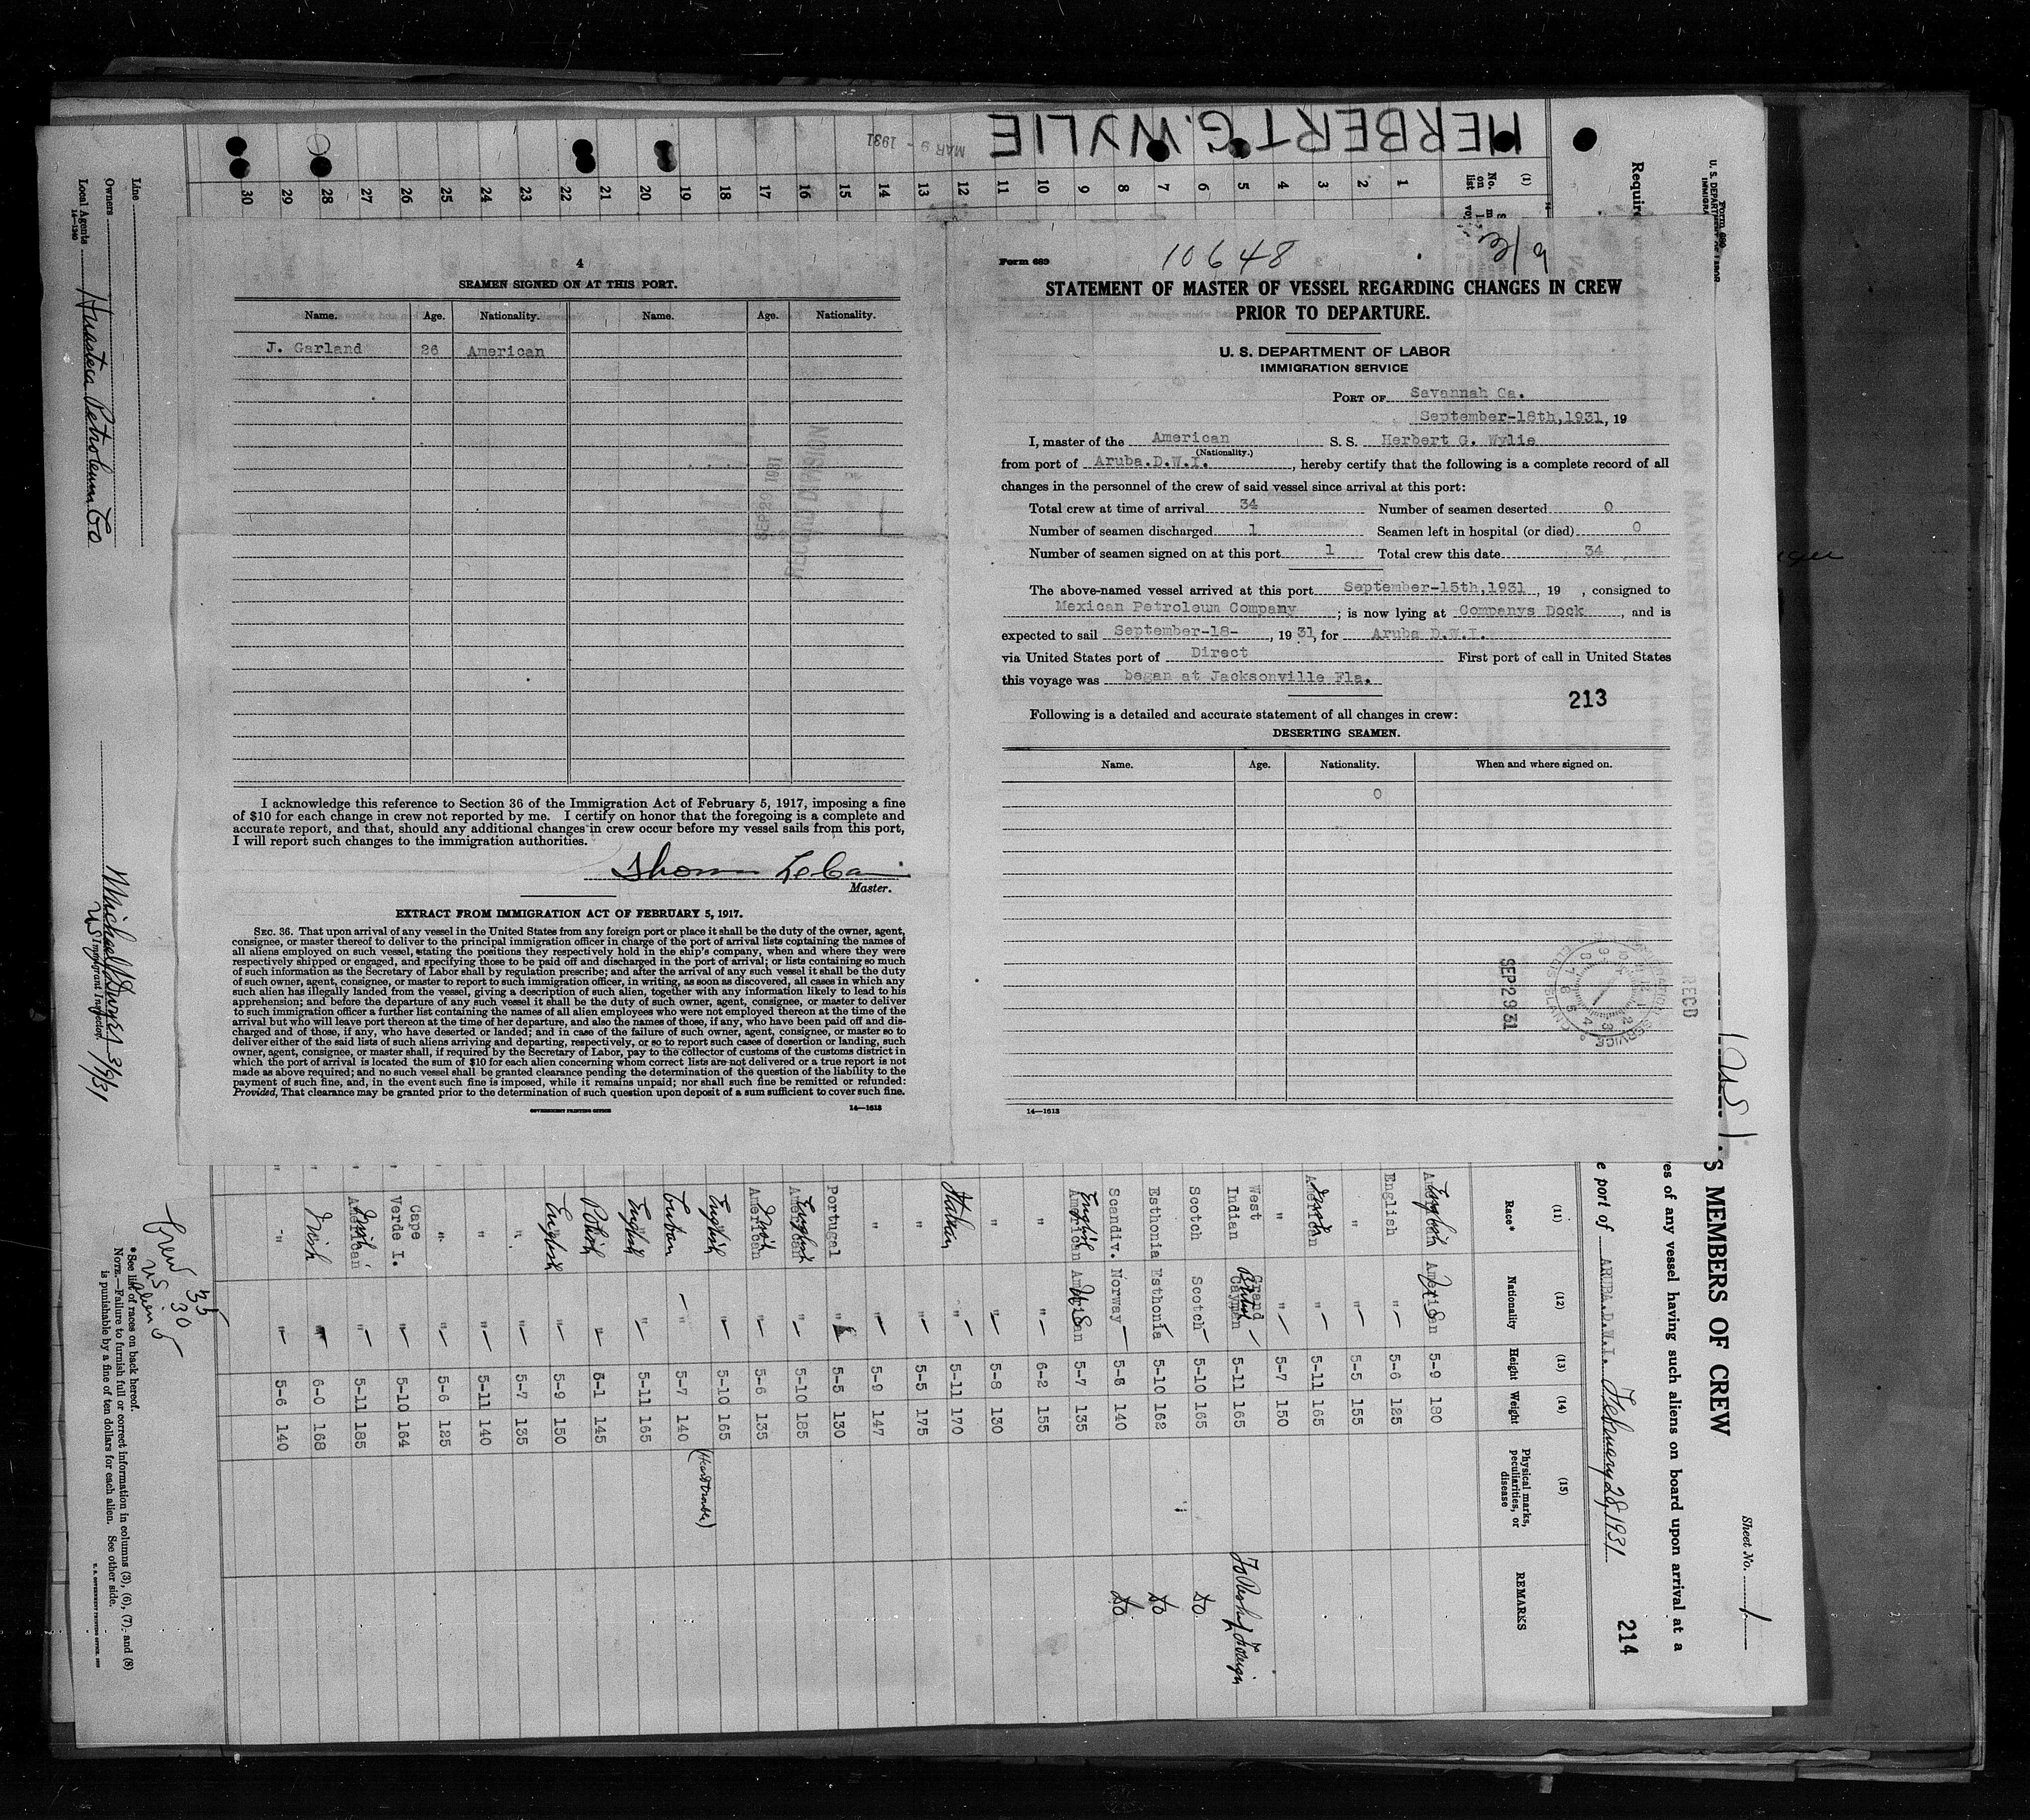 HERBERT G. WYLIE
MAR 9 - 1931
Form 689
10648
STATEMENT OF MASTER OF VESSEL REGARDING CHANGES IN CREW
PRIOR TO DEPARTURE.
U. S. DEPARTMENT OF LABOR
IMMIGRATION SERVICE
PORT OF Savannah Ga.
September-18th,1931, 19
I, master of the American S. S. Herbert G. Wylie
(Nationality.)
from port of Aruba.D.W.I. , hereby certify that the following is a complete record of all
changes in the personnel of the crew of said vessel since arrival at this port:
Total crew at time of arrival 34 Number of seamen deserted 0
Number of seamen discharged 1 Seamen left in hospital (or died) 0
Number of seamen signed on at this port 1 Total crew this date 34
The above-named vessel arrived at this port September-15th,1931, 19 , consigned to
Mexican Petroleum Company ; is now lying at Companys Dock , and is
expected to sail September-18- , 19 31, for Aruba D.W.I.
via United States port of Direct First port of call in United States
this voyage was began at Jacksonville Fla.
213
Following is a detailed and accurate statement of all changes in crew:
DESERTING SEAMEN.
Name. Age. Nationality. When and where signed on.
0
SEP 29 31
RECD
14—1613
4
SEAMEN SIGNED ON AT THIS PORT.
Name. Age. Nationality. Name. Age. Nationality.
J. Garland 26 American
I acknowledge this reference to Section 36 of the Immigration Act of February 5, 1917, imposing a fine
of $10 for each change in crew not reported by me. I certify on honor that the foregoing is a complete and
accurate report, and that, should any additional changes in crew occur before my vessel sails from this port,
I will report such changes to the immigration authorities.
Master.
EXTRACT FROM IMMIGRATION ACT OF FEBRUARY 5, 1917.
SEC. 36. That upon arrival of any vessel in the United States from any foreign port or place it shall be the duty of the owner, agent,
consignee, or master thereof to deliver to the principal immigration officer in charge of the port of arrival lists containing the names of
all aliens employed on such vessel, stating the positions they respectively hold in the ship's company, when and where they were
respectively shipped or engaged, and specifying those to be paid off and discharged in the port of arrival; or lists containing so much
of such information as the Secretary of Labor shall by regulation prescribe; and after the arrival of any such vessel it shall be the duty
of such owner, agent, consignee, or master to report to such immigration officer, in writing, as soon as discovered, all cases in which any
such alien has illegally landed from the vessel, giving a description of such alien, together with any information likely to lead to his
apprehension; and before the departure of any such vessel it shall be the duty of such owner, agent, consignee, or master to deliver
to such immigration officer a further list containing the names of all alien employees who were not employed thereon at the time of the
arrival but who will leave port thereon at the time of her departure, and also the names of those, if any, who have been paid off and dis-
charged and of those, if any, who have deserted or landed; and in case of the failure of such owner, agent, consignee, or master so to
deliver either of the said lists of such aliens arriving and departing, respectively, or so to report such cases of desertion or landing, such
owner, agent, consignee, or master shall, if required by the Secretary of Labor, pay to the collector of customs of the customs district in
which the port of arrival is located the sum of $10 for each alien concerning whom correct lists are not delivered or a true report is not
made as above required; and no such vessel shall be granted clearance pending the determination of the question of the liability to the
payment of such fine, and, in the event such fine is imposed, while it remains unpaid; nor shall such fine be remitted or refunded:
Provided, That clearance may be granted prior to the determination of such question upon deposit of a sum sufficient to cover such fine.
GOVERNMENT PRINTING OFFICE
14—1613
Sheet No. 1
S MEMBERS OF CREW
es of any vessel having such aliens on board upon arrival at a
e port of ARUBA.D.W.I. February 28, 1931
214
(1) (11) (12) (13) (14) (15)
No. on list Race* Nationality Height Weight Physical marks, peculiarities, or disease REMARKS
1 English American 5-9 180
2 English " 5-6 125
3 " " 5-5 155
4 American " 5-11 165
5 " " 5-7 150
6 West Indian Grand Cayman 5-11 165
7 Scotch Scotch 5-10 165 do
8 Esthonia Esthonia 5-10 162 do
9 Scandiv. Norway 5-8 140 do
10 English American 5-7 135
11 " " 6-2 155
12 " " 5-8 130
13 Italian " 5-11 170
14 " " 5-5 175
15 " " 5-9 147
16 Portugal " 5-5 130
17 English American " 5-10 185
18 American " 5-6 135
19 English " 5-10 165
20 Cuban " 5-7 140 (Heart trouble)
21 English " 5-11 165
22 Polish " 5-1 145
23 English " 5-9 150
24 " " 5-7 135
25 " " 5-11 140
26 " " 5-6 125
27 Cape Verde I. " 5-10 164
28 Irish American " 5-11 185
29 Irish " 6-0 168
30 " " 5-6 140
Crew 35
US 30
Alien 5
*See list of races on back hereof.
NOTE.—Failure to furnish full or correct information in columns (3), (6), (7), and (8)
is punishable by a fine of ten dollars for each alien. See other side.
Line
Owners
Local Agents Huasteca Petroleum Co
14—1240
Immigrant Inspector.
3/9/31